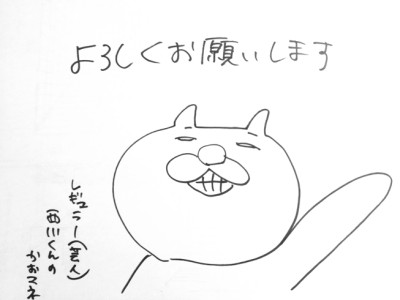 よろしくお願いします
レギュラー(芸人)
西川くんの
かおマネ